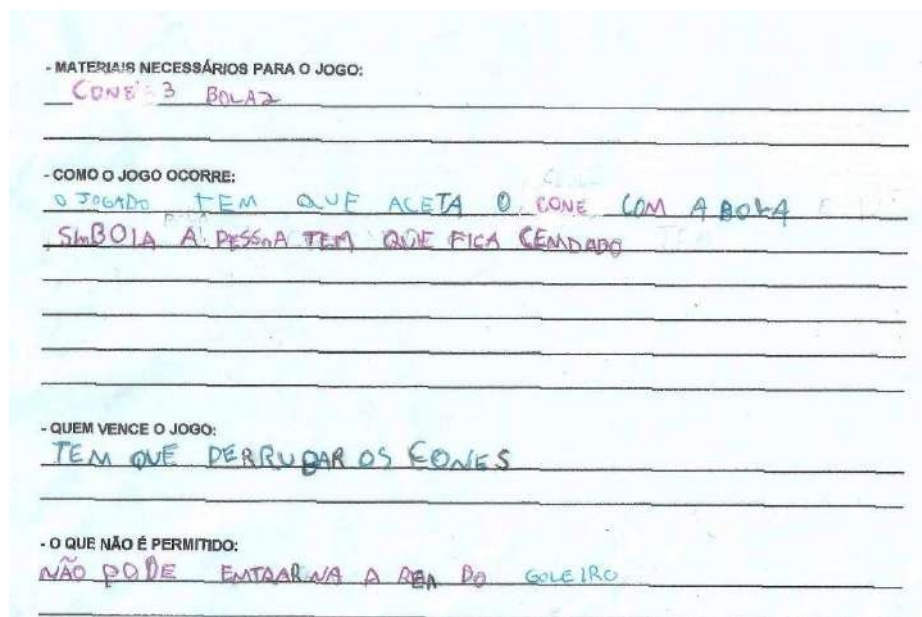 - MATERIAIS NECESSÁRIOS PARA O JOGO:
CONE 3 BOLA2
- COMO O JOGO OCORRE:
O JOGADO TEM QUE ACETA O CONE COM A BOLA
SMBOLA A PESSOA TEM QUE FICA CEMDADO
- QUEM VENCE O JOGO:
TEM QUE DERRUBAR OS CONES
- O QUE NÃO É PERMITIDO:
NÃO PODE EMTRAR NA A REA DO GOLEIRO